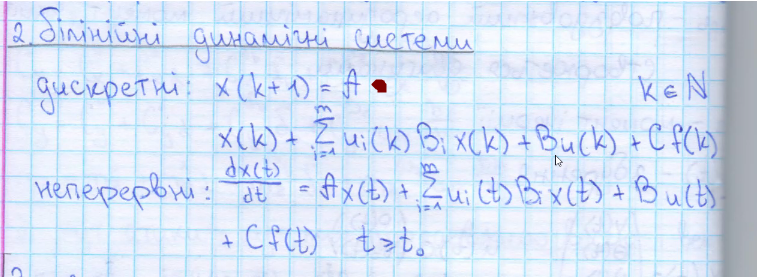 2. Білінійні динамічні системи
дискретні: x(k+1) = A k ∈ ℕ
x(k) + ∑ᵢ₌₁ᵐ uᵢ(k) Bᵢ x(k) + Bu(k) + Cf(k)
неперервні: dx(t)/dt = Ax(t) + ∑ᵢ₌₁ᵐ uᵢ(t) Bᵢ x(t) + Bu(t)
+ Cf(t) t ≥ t₀